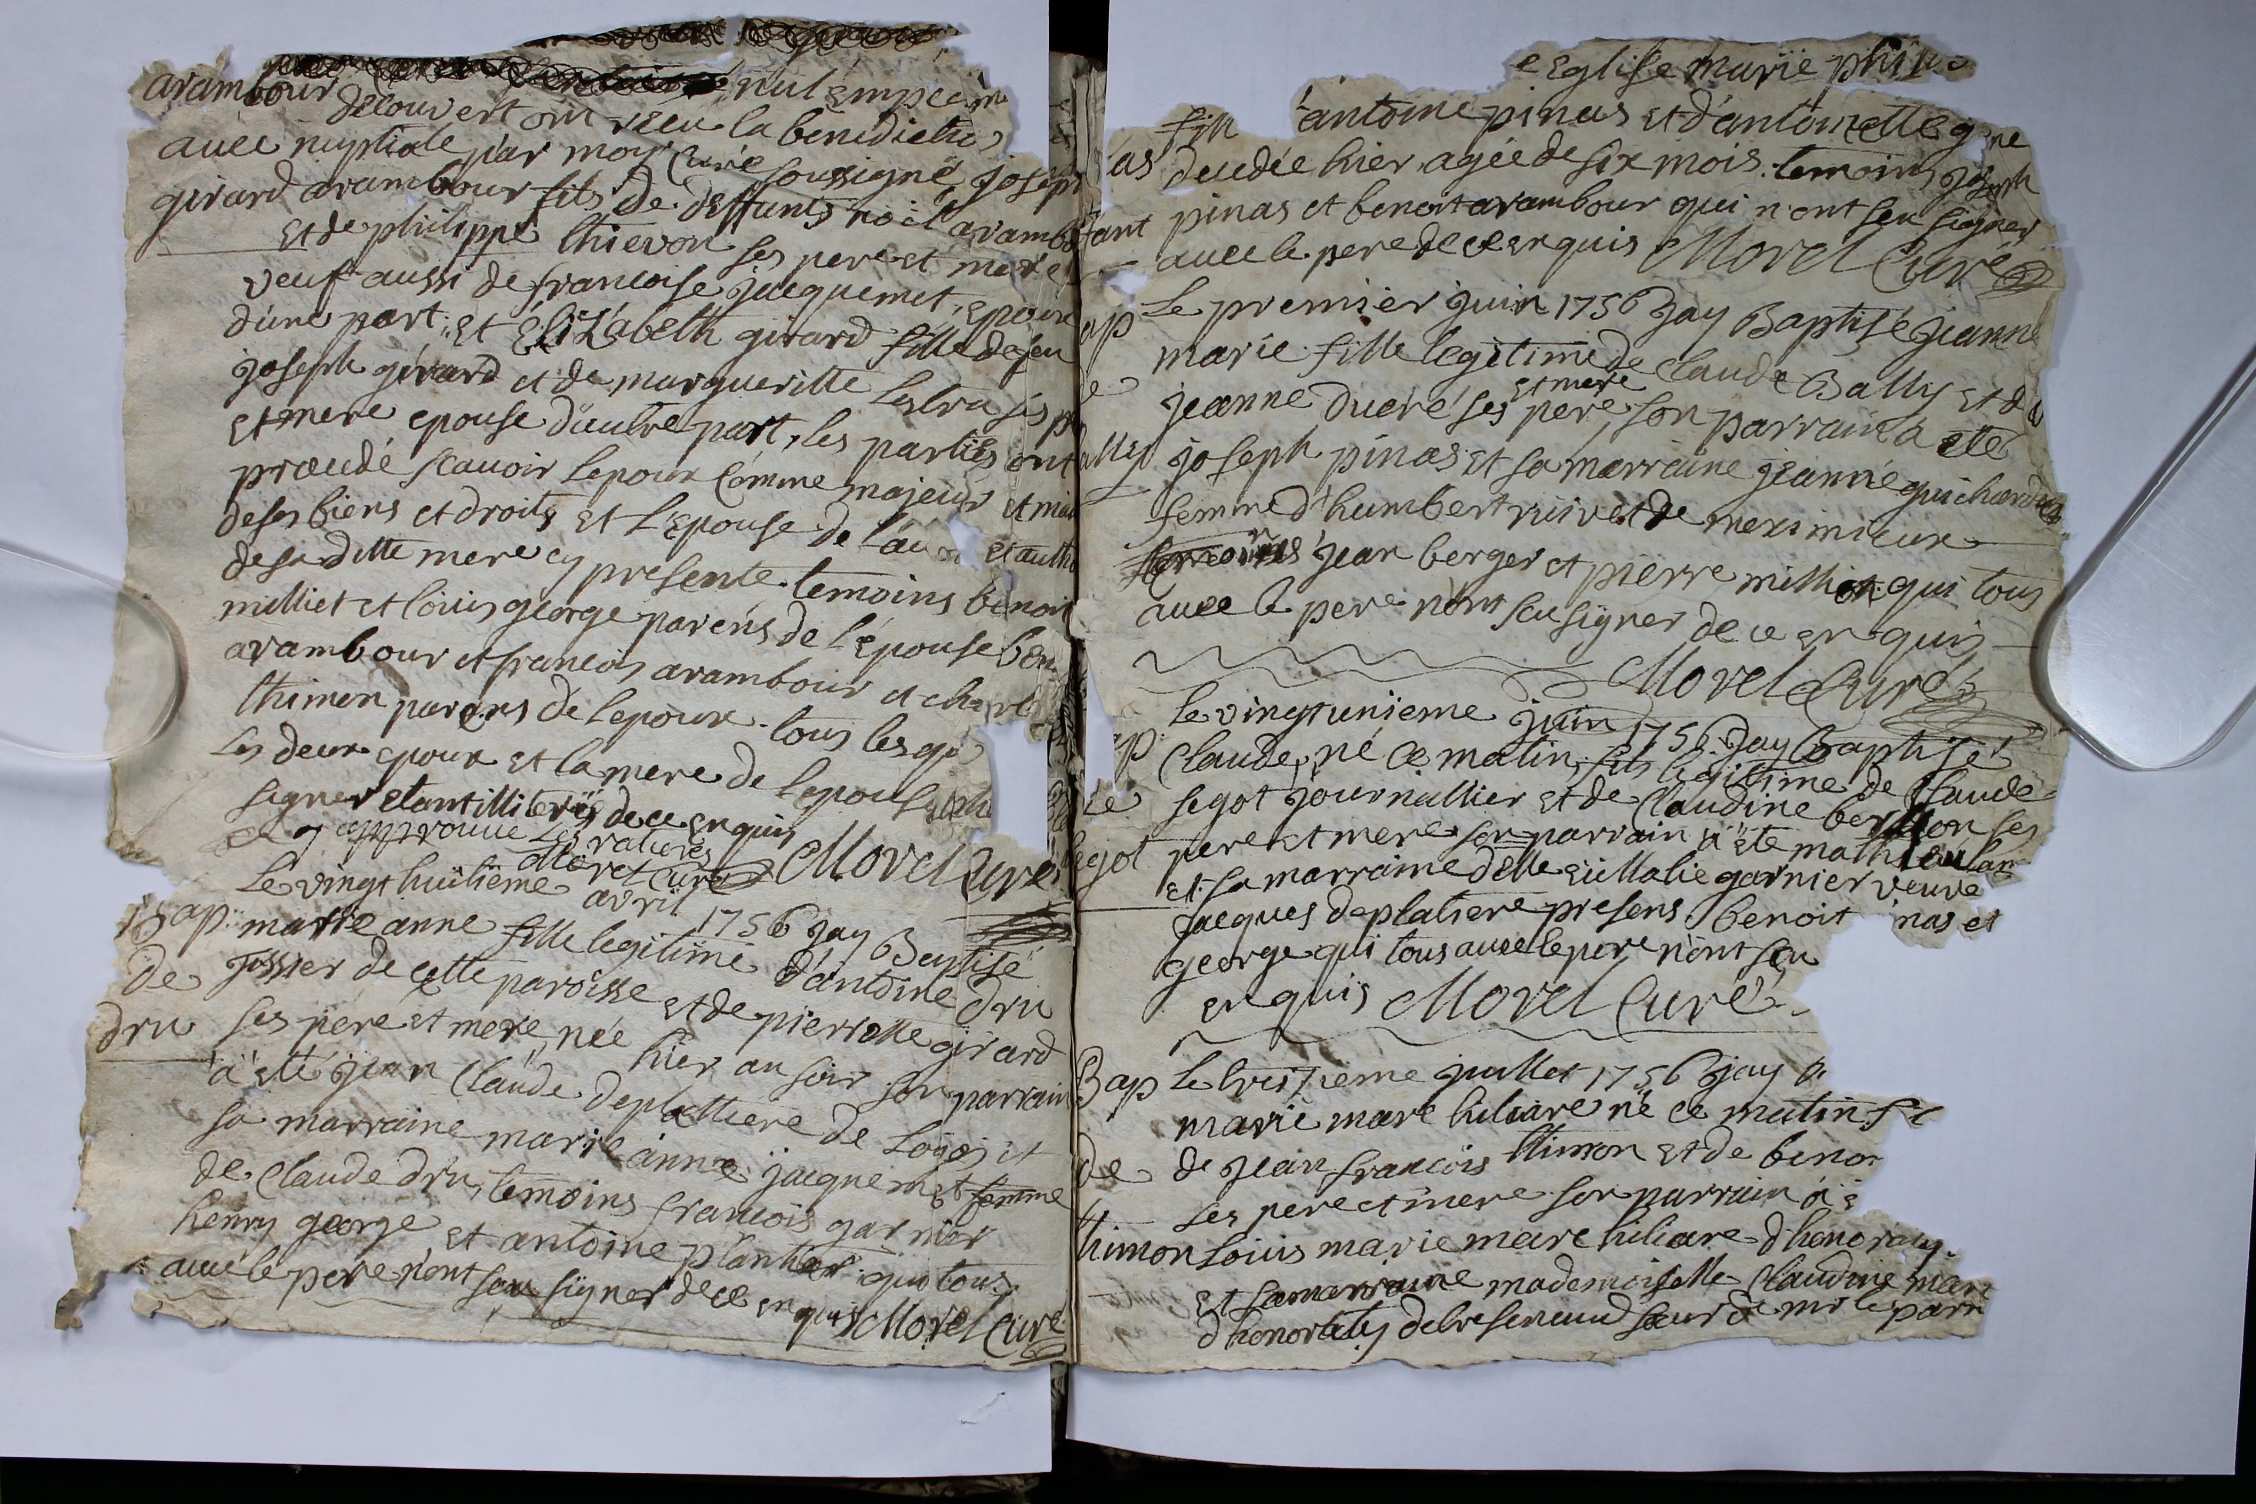 nul empeche
arambour decouvert ont receu la benediction
avec nuptiale par moy Curé soussigné, joseph
girard arambour fils de deffunts noël arambo
Et de philippe thievon ses pere et mere
veuf aussi de francoise jacquemet, epoux
d'une part, Et Elizabeth girard fille de feu
joseph girard et de margueritte Lestra ses p
Et mere epouse d'autre part, les parties ont
procedé scavoir lepoux Comme majeur et mai
de ses biens et droits et L'Epouse de l'au et autho
de sa ditte mere cy presente. temoins benoit
milliet et loüis george parens de l'epouse ben
arambour et francois arambour et charle
thimon parens de lepoux. tous les q
Les deux epoux et la mere de lepouse
signer étant illiterés de ce enquis
et j approuve Les ratures
Morel Curé Morel Curé
Le vingt huitième avril 1756 jay Baptisé
Bap marie anne fille legitime d'antoine dru
de jossier de cette paroisse et de pierrette girard
dru ses pere et mere, née hier au soir son parrain
a eté jean Claude deplattiere de Loyes et
sa marraine marie anne jacquemet femme
de Claude dru, temoins francois garnier
henry george et antoine plantier qui tous
avec le pere n'ont sçu signer de ce enquis Morel Curé
Eglise marie phili
fill antoine pinas et d'antoinette g
as decedée hier agée de six mois. temoins joseph
tant pinas et benoit arambour qui n'ont seu signer
avec le pere de ce enquis Morel Curé
ap Le premier juin 1756 jay Baptisé jeanne
marie fille legitime de Claude Bally et de
de jeanne ducré ses pere et mere, son parrain a eté
ally joseph pinas et sa marraine jeanne guichard
femme d'humbert ruivet de meximieux
temoins jean berger et pierre million qui tous
avec le pere n'ont seu signer de ce enquis
Morel Curé
ap. Le vingtunieme juin 1756. jay Baptisé
Claude, né ce matin, fils legitime de Claude
de segot journallier et de Claudine ses
segot pere et mere son parrain a eté mathieu
et sa marraine delle eullalie garnier veuve
jacques deplatiere presens. benoit nas et
george qui tous avec le pere n'ont seu
enquis Morel Curé
Bap Le treizieme juillet 1756 jay
marie marc hilaire né ce matin fi
de de jean francois thimon et de benoi
ses pere et mere son parrain a é
thimon Loüis marie marc hilaire d'honoraty
Et sa marraine mademoiselle Claudine marc
d'honoraty sœur de mr le parr